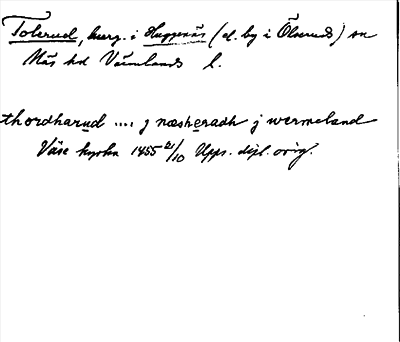 Tolerud, herg. i Huggenäs (el. by i Ölserud) sn
Näs hd Värmlands l.
thordharud .... j næsheradh j wermeland
Väse kyrka 1455 21/10 Upps. dipl. orig.